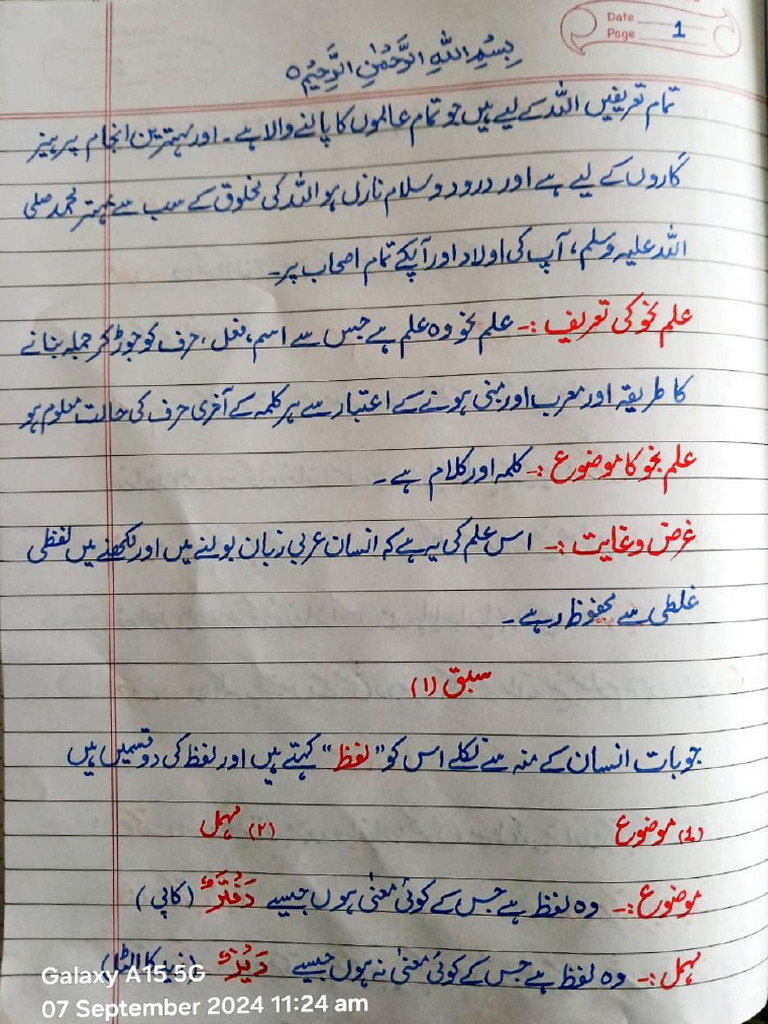 Date
Page 1
بِسْمِ اللهِ الرَّحْمٰنِ الرَّحِيْمِ ○
تمام تعریفیں اللہ کے لیے ہیں جو تمام عالموں کا پالنے والا ہے۔ اور بہترین انجام پرہیز
گاروں کے لیے ہے اور درود و سلام نازل ہو اللہ کی مخلوق کے سب سے بہتر محمد صلی
اللہ علیہ وسلم، آپ کی اولاد اور آپکے تمام اصحاب پر۔
علم نحو کی تعریف :- علم نحو وہ علم ہے جس سے اسم، فعل، حرف کو جوڑ کر جملہ بنانے
کا طریقہ اور معرب اور مبنی ہونے کے اعتبار سے ہر کلمہ کے آخری حرف کی حالت معلوم ہو
علم نحو کا موضوع :- کلمہ اور کلام ہے۔
غرض و غایت :- اس علم کی یہ ہے کہ انسان عربی زبان بولنے میں اور لکھنے میں لفظی
غلطی سے محفوظ رہے۔
سبق (۱)
جو بات انسان کے منہ سے نکلے اس کو "لفظ" کہتے ہیں اور لفظ کی دو قسمیں ہیں
(1) موضوع (۲) مہمل
موضوع :- وہ لفظ ہے جس کے کوئی معنیٰ ہوں جیسے دَفْتَرٌ (کاپی)
مہمل :- وہ لفظ ہے جس کے کوئی معنیٰ نہ ہوں جیسے دَیْزٌ کا الٹا)
Galaxy A15 5G
07 September 2024 11:24 am